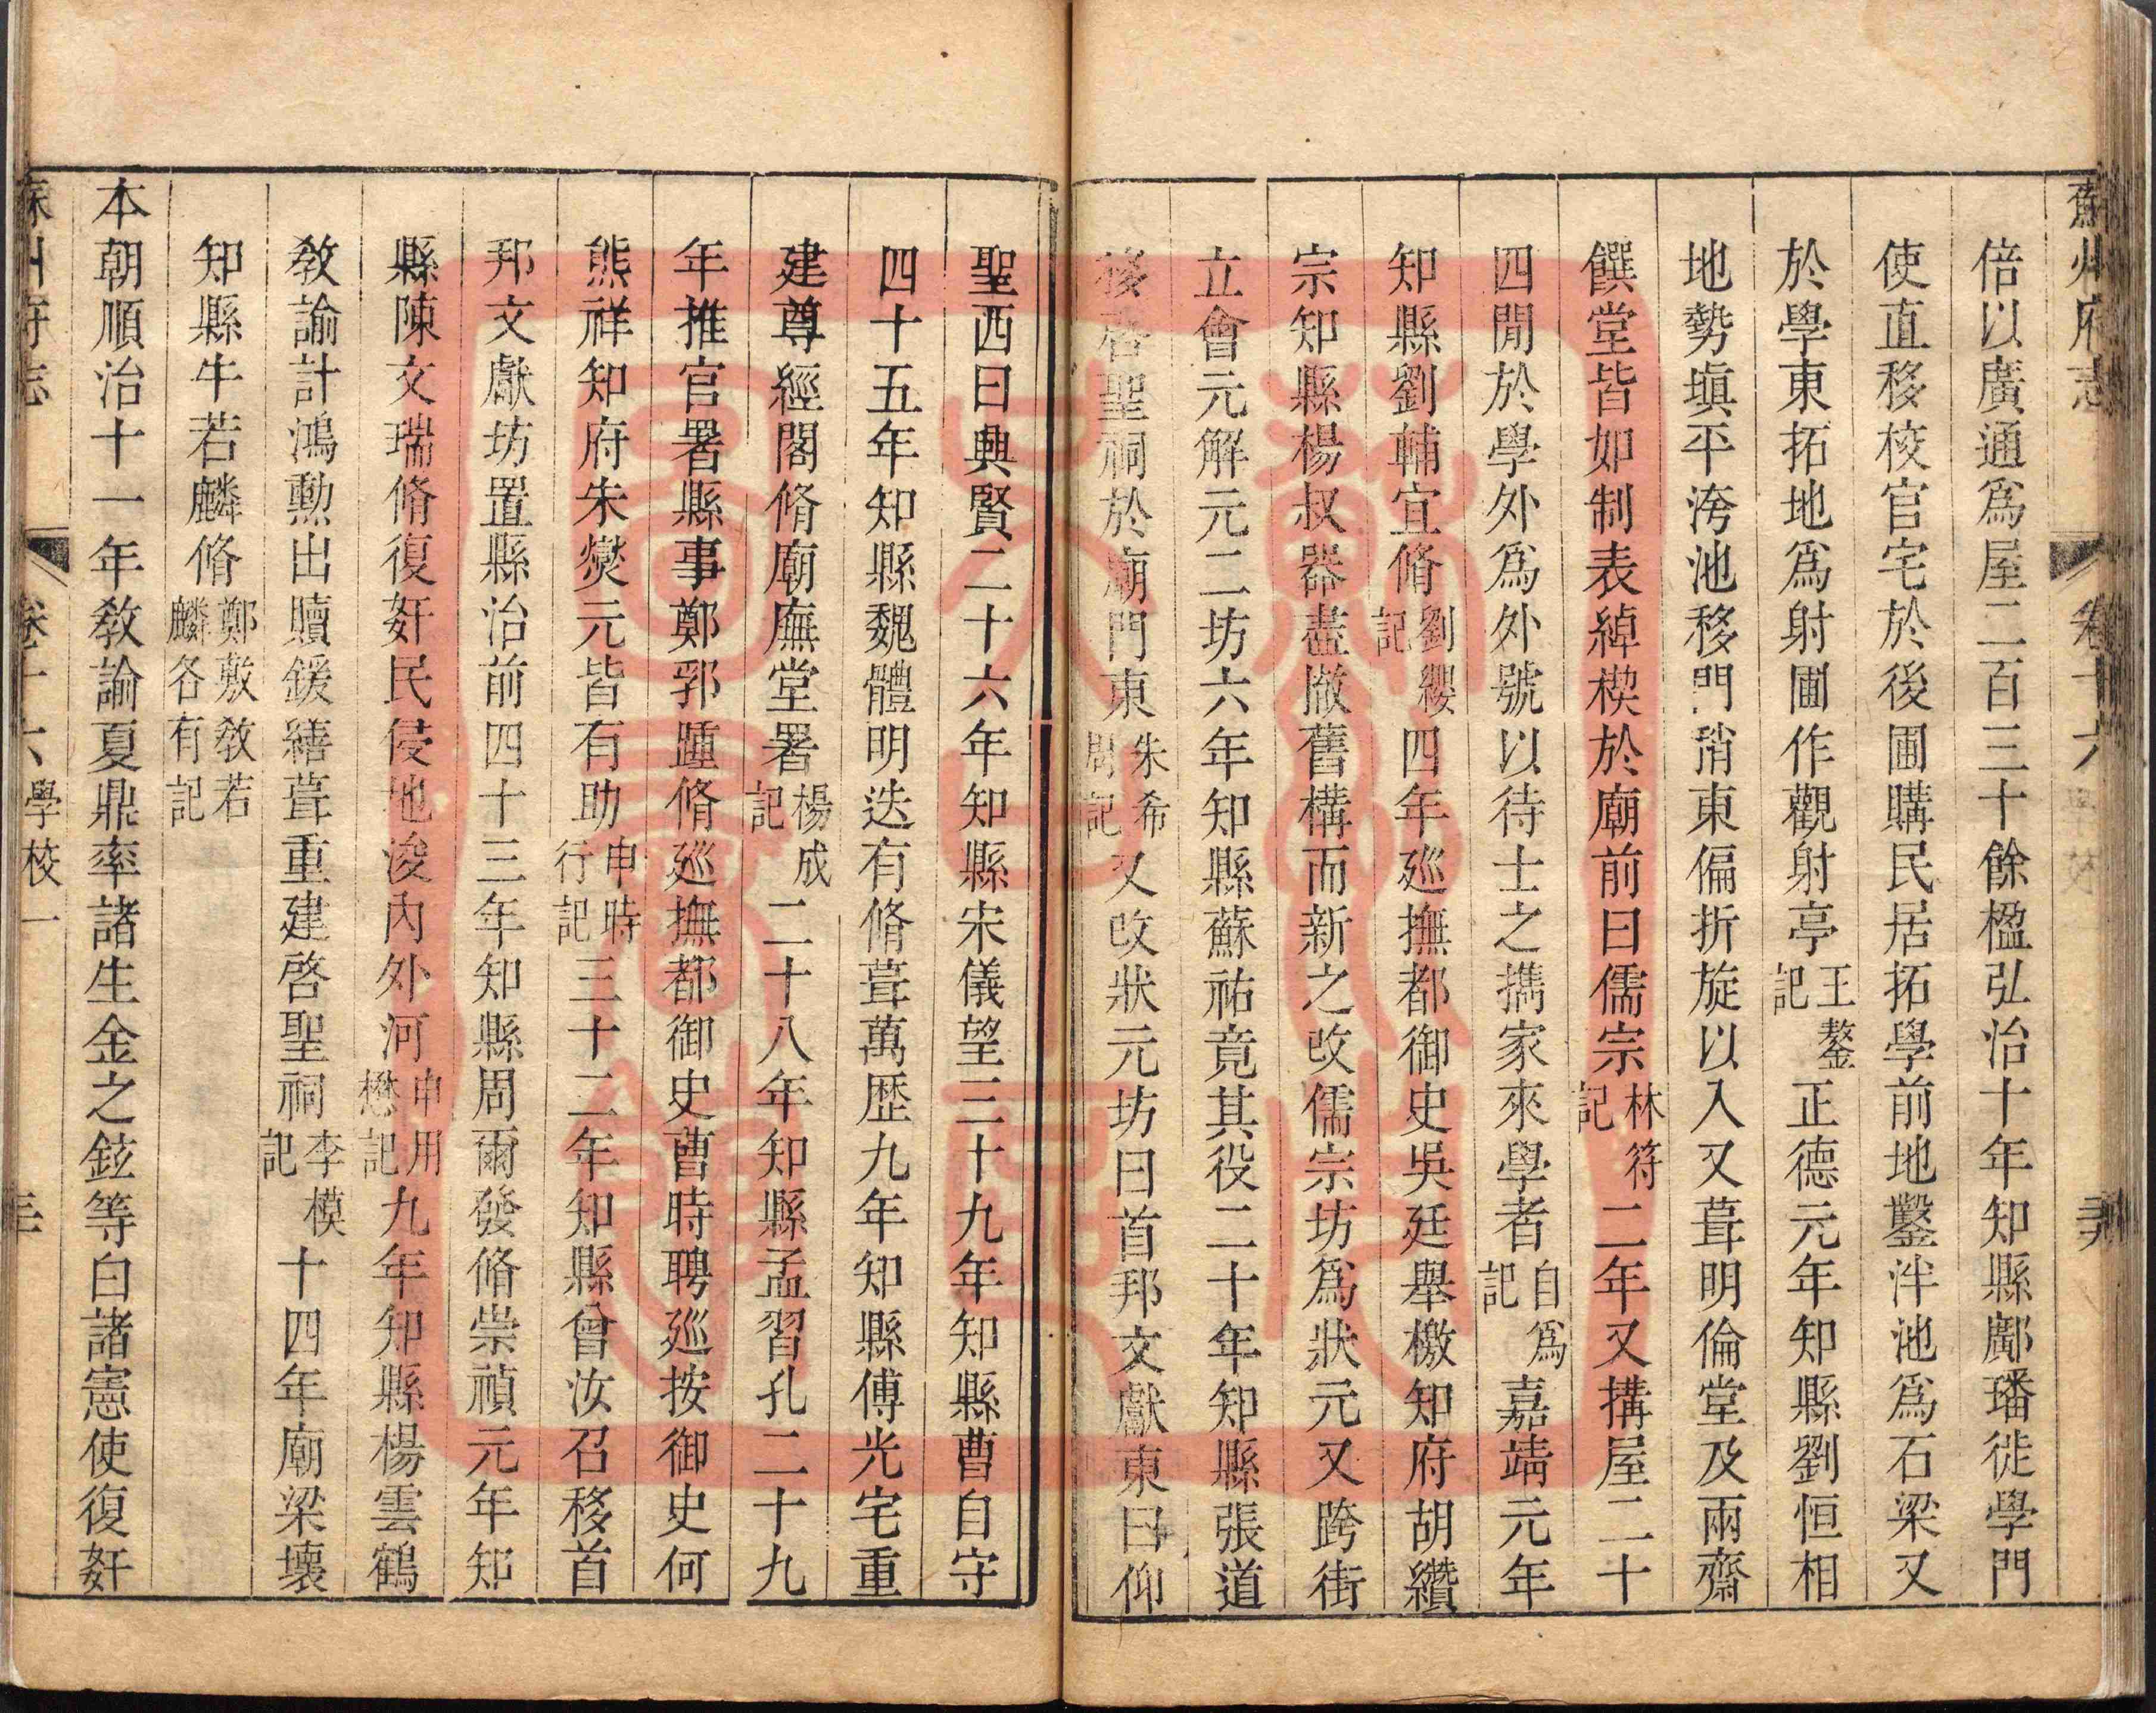 蘇州府志 卷十六
倍以廣通爲屋二百三十餘楹弘治十年知縣鄺璠徙學門
使直移校官宅於後圃購民居拓學前地鑿泮池爲石梁又
於學東拓地爲射圃作觀射亭王鏊記正德元年知縣劉恒相
地勢塡平洿池移門稍東偏折旋以入又葺明倫堂及兩齋
饌堂皆如制表綽楔於廟前曰儒宗林符記二年又搆屋二十
四閒於學外爲外號以待士之攜家來學者自爲記嘉靖元年
知縣劉輔宜脩劉纓記四年廵撫都御史吳廷舉檄知府胡纘
宗知縣楊叔器盡撤舊構而新之改儒宗坊爲狀元又跨街
立會元解元二坊六年知縣蘇祐竟其役二十年知縣張道
移啓聖祠於廟門東朱希周記又改狀元坊曰首邦文獻東曰仰
聖西曰興賢二十六年知縣宋儀望三十九年知縣曹自守
四十五年知縣魏體明迭有脩葺萬歴九年知縣傅光宅重
建尊經閣脩廟廡堂署楊成記二十八年知縣孟習孔二十九
年推官署縣事鄭郛踵脩廵撫都御史曹時聘廵按御史何
熊祥知府朱燮元皆有助申時行記三十二年知縣曾汝召移首
邦文獻坊置縣治前四十三年知縣周爾發脩崇禎元年知
縣陳文瑞脩復奸民侵地浚內外河申用懋記九年知縣楊雲鶴
敎諭計鴻勳出贖鍰繕葺重建啓聖祠李模記十四年廟梁壞
知縣牛若麟脩鄭敷敎若麟各有記
本朝順治十一年敎諭夏鼎率諸生金之鉉等白諸憲使復奸
蘇州府志 卷十六 學校一